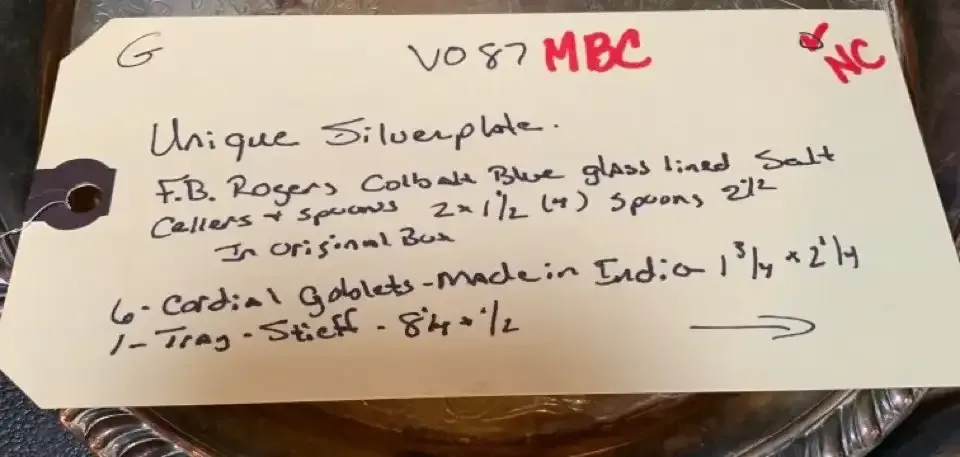 G VO87 MBC NC
Unique Silverplate.
F.B. Rogers Colbalt Blue glass lined Salt
Cellers + spoons 2x1 1/2 (4) Spoons 2 1/2
In original Box
6- Cordial Goblets - Made in India 1 3/4 x 2 1/4
1- Tray - Stieff - 8 1/4 x 1/2